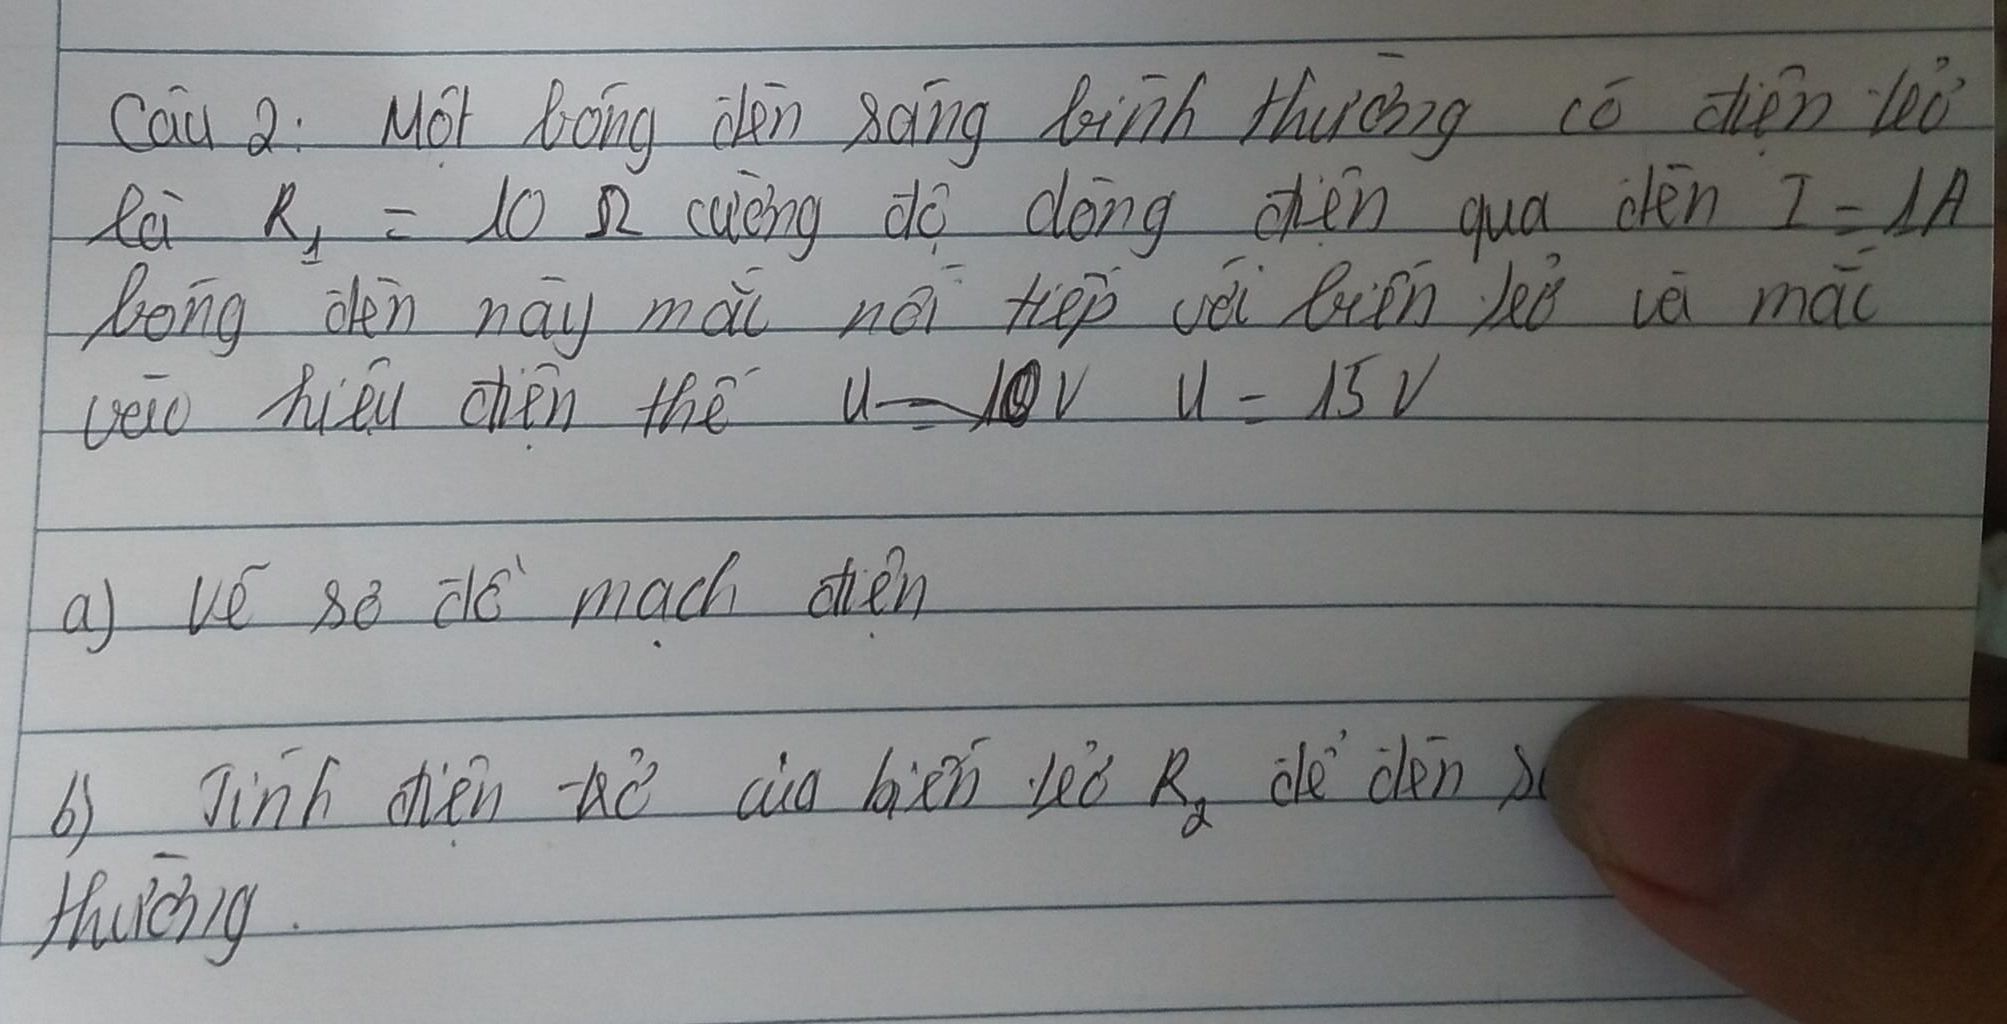 Câu 2: Một bóng đèn sáng bình thường có điện trở
là R₁ = 10 Ω cường độ dòng điện qua đèn I = 1A
bóng đèn này mắc nối tiếp với biến trở và mắc
vào hiệu điện thế U = 10V U = 15V
a) Vẽ sơ đồ mạch điện
b) Tính điện trở của biến trở R₂ để đèn
thường.